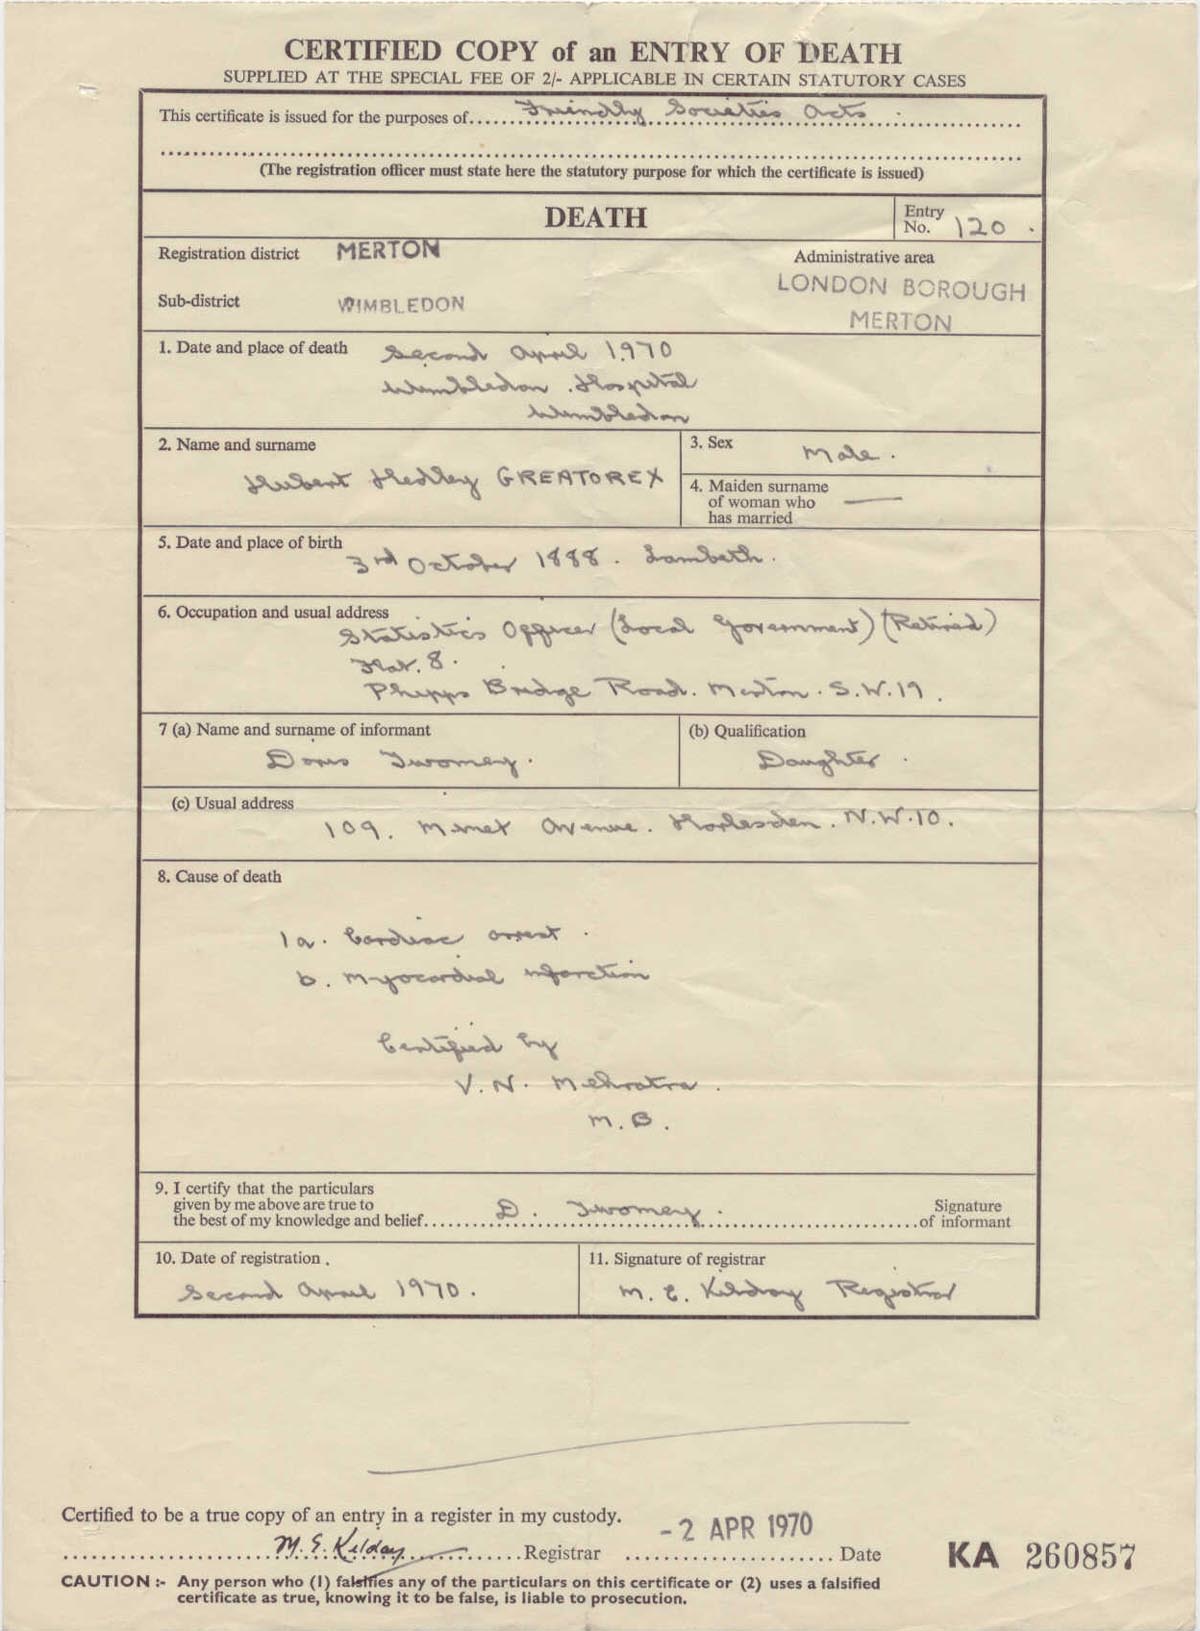 CERTIFIED COPY of an ENTRY OF DEATH
SUPPLIED AT THE SPECIAL FEE OF 2/- APPLICABLE IN CERTAIN STATUTORY CASES
This certificate is issued for the purposes of Friendly Societies Acts
(The registration officer must state here the statutory purpose for which the certificate is issued)
DEATH
Entry No. 120.
Registration district MERTON
Administrative area
LONDON BOROUGH
MERTON
Sub-district WIMBLEDON
1. Date and place of death Second April 1970
Wimbledon Hospital
Wimbledon
2. Name and surname
Hubert Hedley GREATOREX
3. Sex Male.
4. Maiden surname
of woman who
has married —
5. Date and place of birth
3rd October 1888. Lambeth.
6. Occupation and usual address
Statistics Officer (Local Government) (Retired)
Flat. 8.
Phipps Bridge Road. Merton. S.W.19.
7 (a) Name and surname of informant
Doris Twomey.
(b) Qualification
Daughter.
(c) Usual address
109. Minet Avenue. Harlesden. N.W.10.
8. Cause of death
1a. Cardiac arrest.
b. Myocardial infarction
Certified by
V. N. Mehrotra.
M.B.
9. I certify that the particulars
given by me above are true to
the best of my knowledge and belief D. Twomey. Signature
of informant
10. Date of registration.
Second April 1970.
11. Signature of registrar
M. E. Kilday Registrar
Certified to be a true copy of an entry in a register in my custody.
M. E. Kilday Registrar -2 APR 1970 Date
KA 260857
CAUTION :- Any person who (1) falsifies any of the particulars on this certificate or (2) uses a falsified
certificate as true, knowing it to be false, is liable to prosecution.